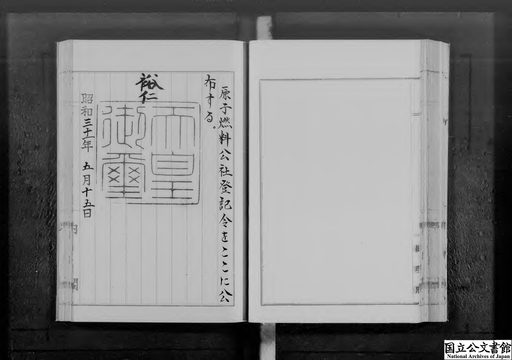 原子燃料公社登記令をここに公
布する。
裕仁
天皇
御璽
昭和三十一年 五月十五日
国立公文書館
National Archives of Japan